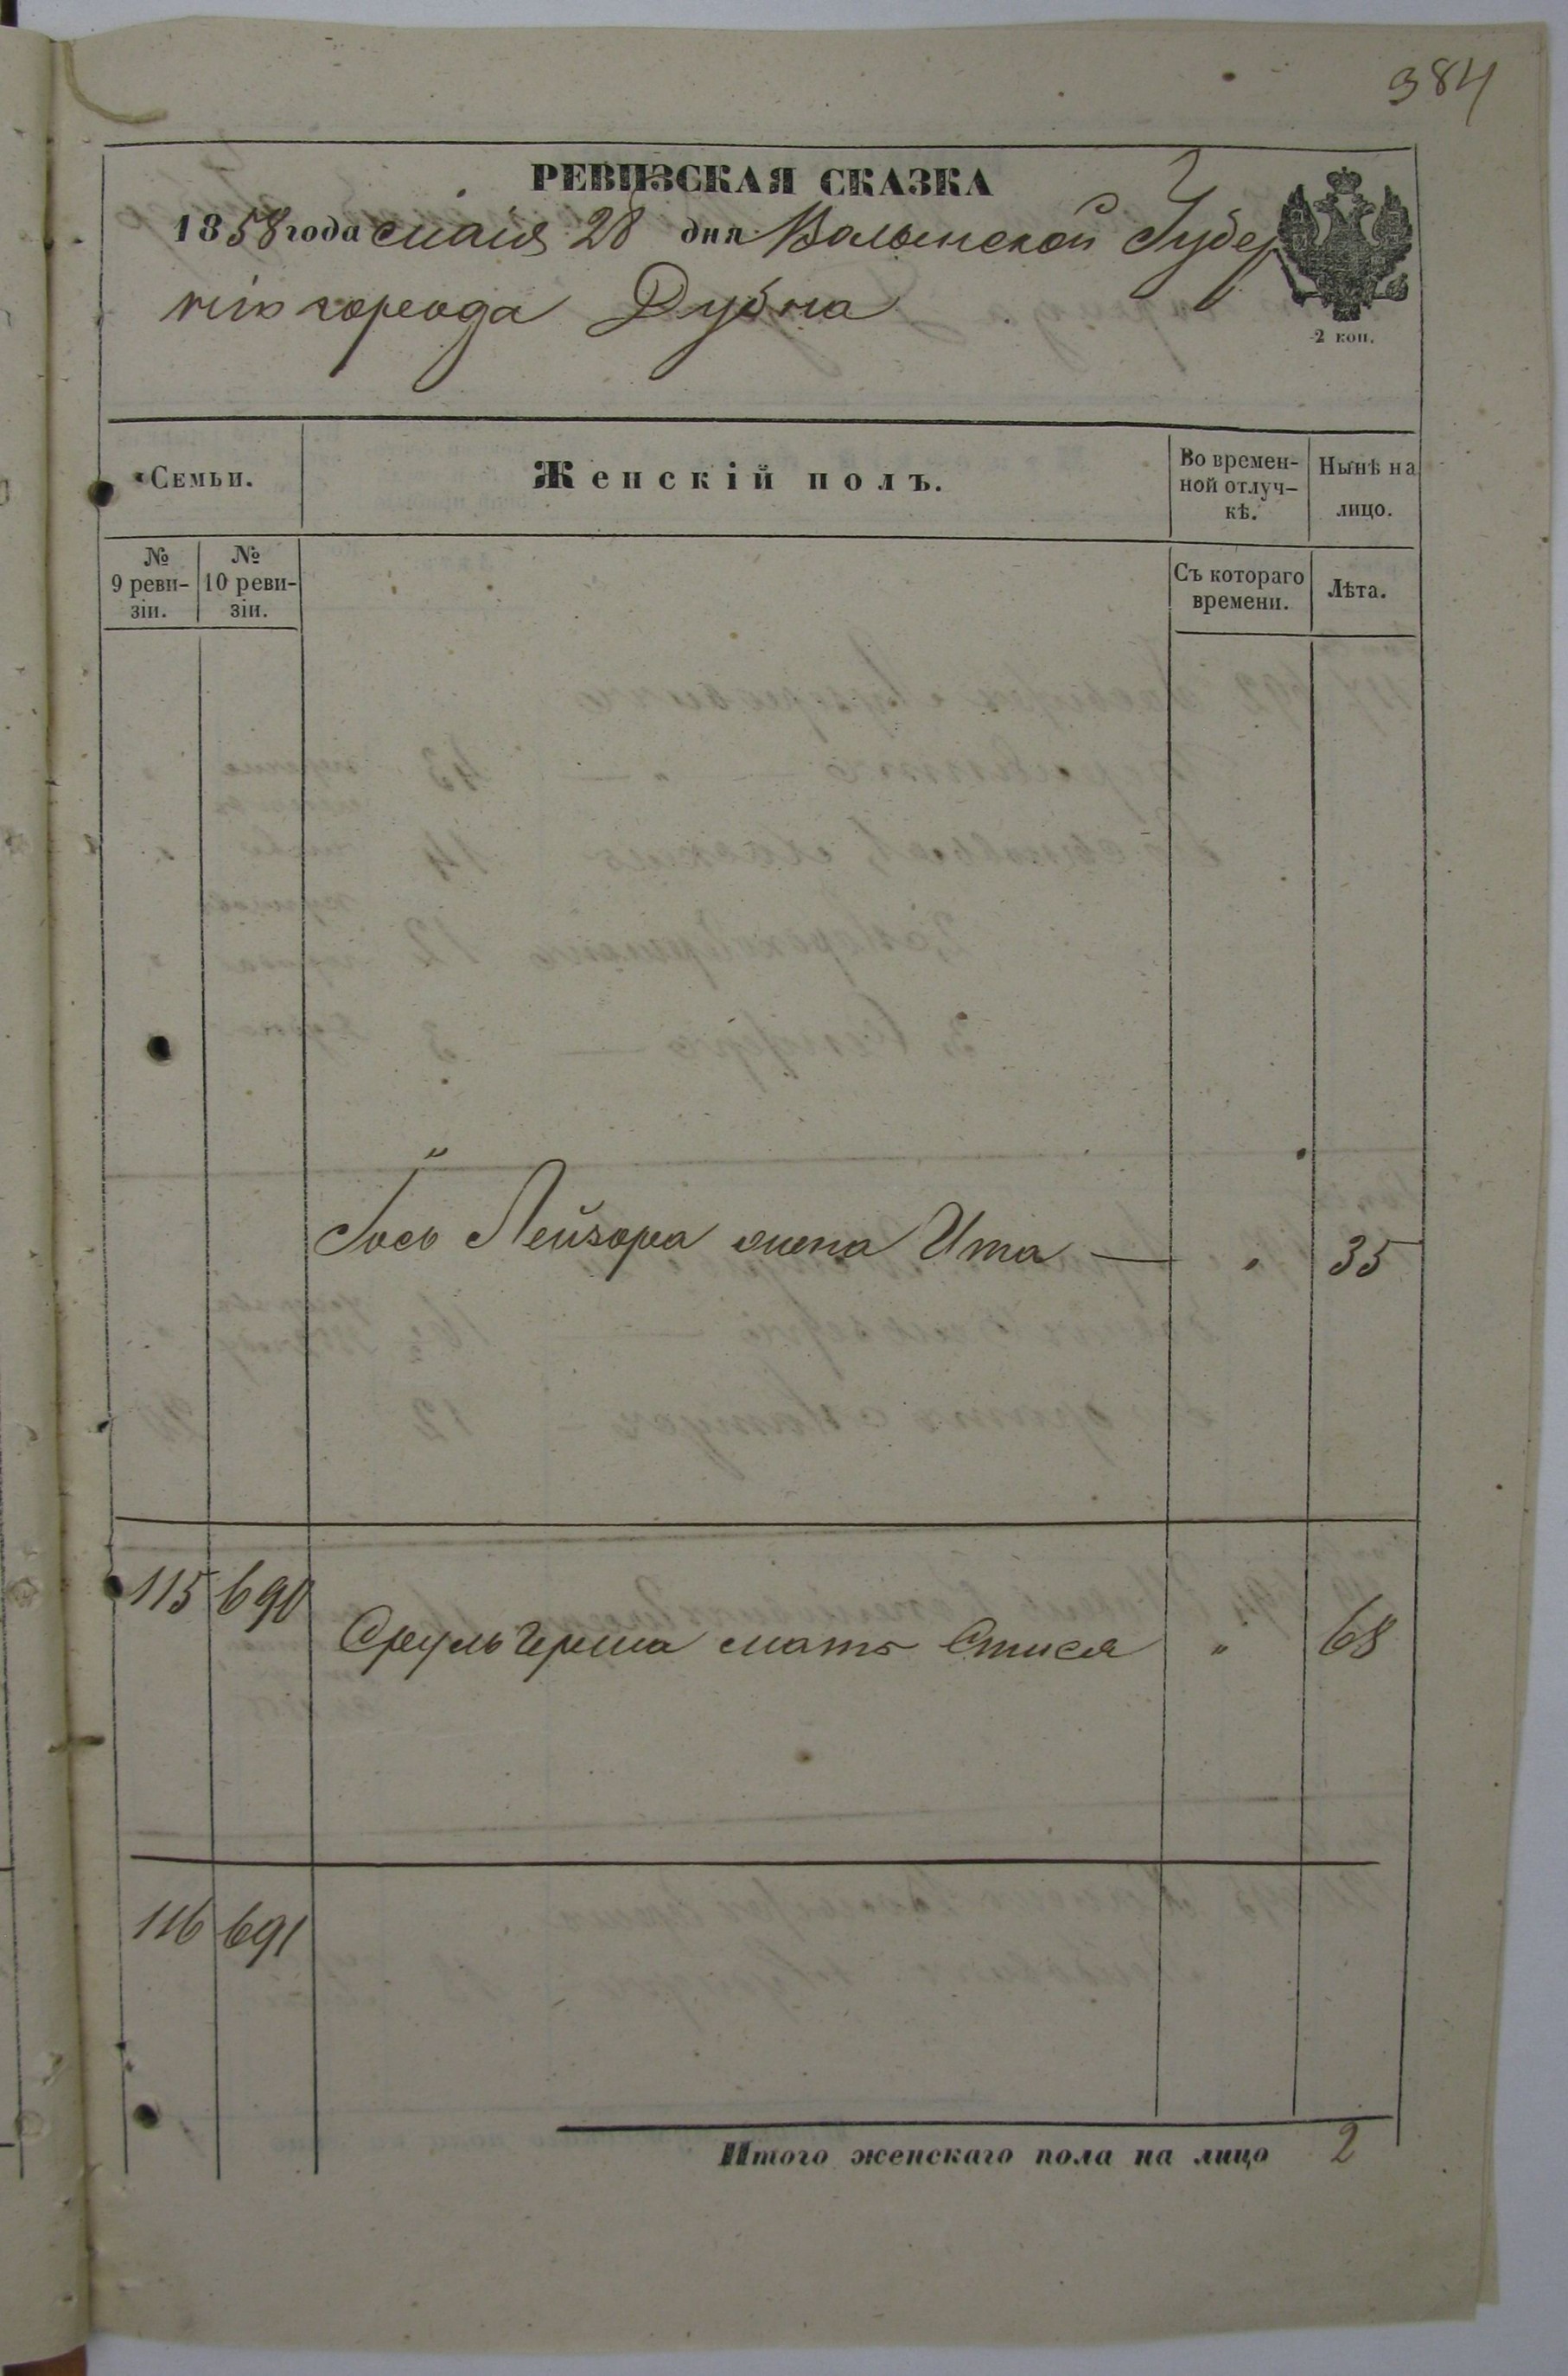 384
РЕВИЗСКАЯ СКАЗКА
1858 года маія 28 дня Волынской Губер
ніи города Дубна
2 коп.
Семьи.
Женскій полъ.
Во времен-
ной отлуч-
кѣ.
Нынѣ на
лицо.
№
9 реви-
зіи.
№
10 реви-
зіи.
Съ котораго
времени.
Лѣта.
Лейзора жена Ита — " 35
115 690
Сруль Герша мать Стися " 68
116 691
Итого женскаго пола на лицо 2